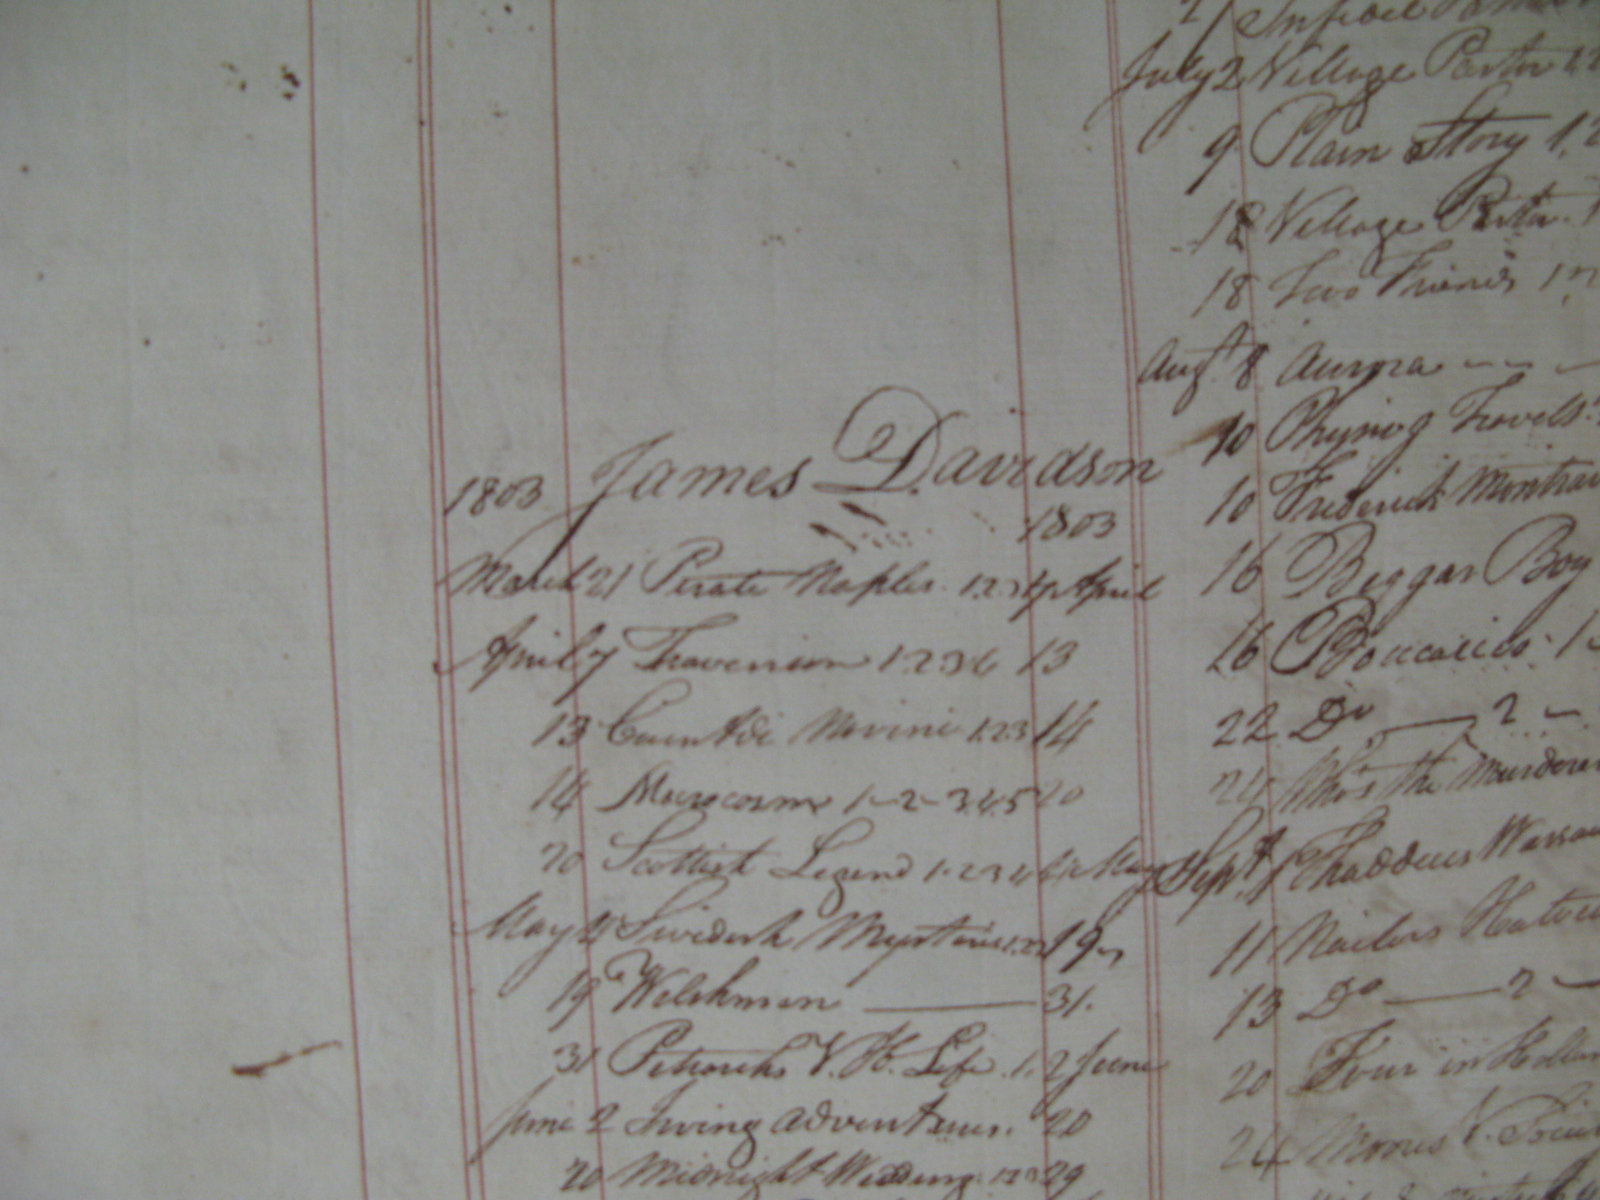 1803 James Davidson
1803
March 21 Pirate Naples 1.2.3 4 April
April 7 Travenion 1.2.3.4 13
13 1.2.3 14
14 Microcosm 1-2-3.4.5 20
20 Scottish Legend 1.2.3.4 4 May
May 4 Swedish Mysteries 1.2.3 19
19 Welshman ——— 31.
31 Petrarchs V. H. Life 1. 2 June
June 2 Irving adventures. 20
20 Midnight Wedding 1.2.3 29
July 2 Village Pastor
9 Plain Story 1.2
12 Village Pastor. 1
18 Two Friends 1 2
Augt 8 Aurora - - -
10 Physiog Travels
10 Frederick Montrav
16 Beggar Boy
16 Boccacios 1
22 Do —— 2 -
24 Who's the Murderer
Sept 1 Thaddeus Warsaw
11 Nailors
13 Do —— 2 —
20 Tour in Hollan
24